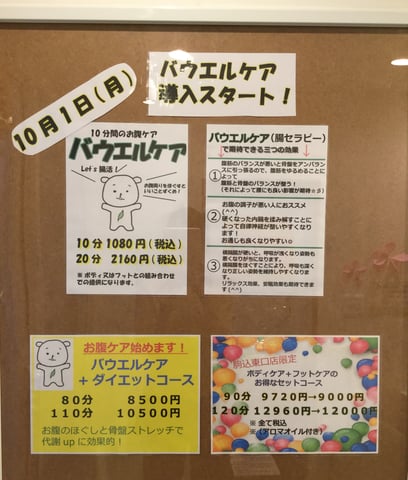 10月1日(月)
バウエルケア
導入スタート！
10分間のお腹ケア
バウエルケア
Let's 腸活！
お腹周りをほぐすと
いいことずくめ！
10分 1080円(税込)
20分 2160円(税込)
※ボディ又はフットとの組み合わせ
での提供になります。
バウエルケア(腸セラピー)
で期待できる三つの効果
①
腹筋のバランスが悪いと骨盤をアンバラン
スに引っ張るので、腹筋をゆるめることによっ
て
腹筋と骨盤のバランスが整う！
(それによって腰にも良い影響が期待☆彡)
②
お腹の調子が悪い人におススメ
(^^)
硬くなった内臓を揉み解すことによ
って自律神経が整いやすくなりま
す！
お通じも良くなりやすい☆
③
横隔膜が硬いと、呼吸が浅くなり姿勢も
悪くなりがちになります。
横隔膜をほぐすことにより、呼吸も深く
なり正しい姿勢を維持しやすくなりま
す。
リラックス効果、安眠効果も期待できま
す(^^)
お腹ケア始めます！
バウエルケア
＋ダイエットコース
80分 8500円
110分 10500円
お腹のほぐしと骨盤ストレッチで
代謝upに効果的！
駒込東口店限定
ボディケア＋フットケアの
お得なセットコース
90分 9720円→9000円
120分 12960円→12000円
※全て税込
※(アロマオイル付き)